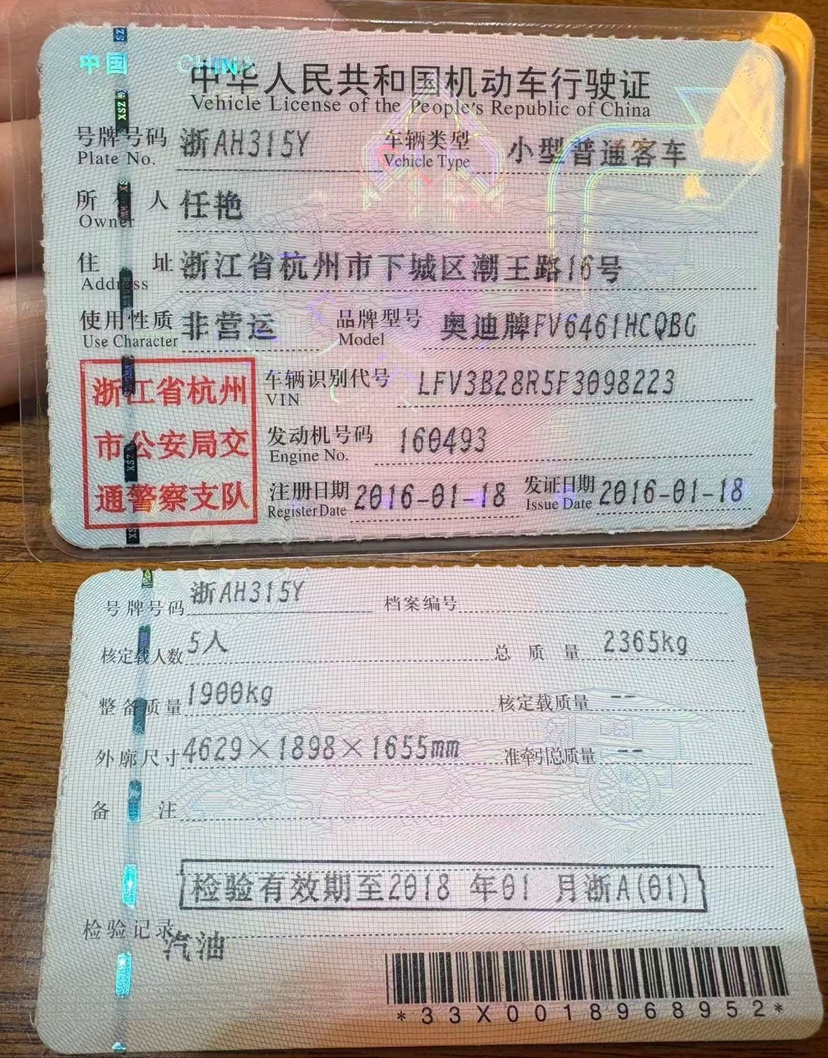 中国 CHINA
中华人民共和国机动车行驶证
Vehicle License of the People's Republic of China
号牌号码 浙AH315Y 车辆类型 小型普通客车
Plate No. Vehicle Type
所有人 任艳
Owner
住址 浙江省杭州市下城区潮王路16号
Address
使用性质 非营运 品牌型号 奥迪牌FV6461HCQBG
Use Character Model
浙江省杭州
市公安局交
通警察支队
车辆识别代号 LFV3B28R5F3098223
VIN
发动机号码 160493
Engine No.
注册日期 2016-01-18 发证日期 2016-01-18
Register Date Issue Date
号牌号码 浙AH315Y 档案编号
核定载人数 5人 总质量 2365kg
整备质量 1900kg 核定载质量 --
外廓尺寸 4629×1898×1655mm 准牵引总质量 --
备注
检验有效期至2018 年01 月浙A(01)
检验记录 汽油
*33X0018968952*